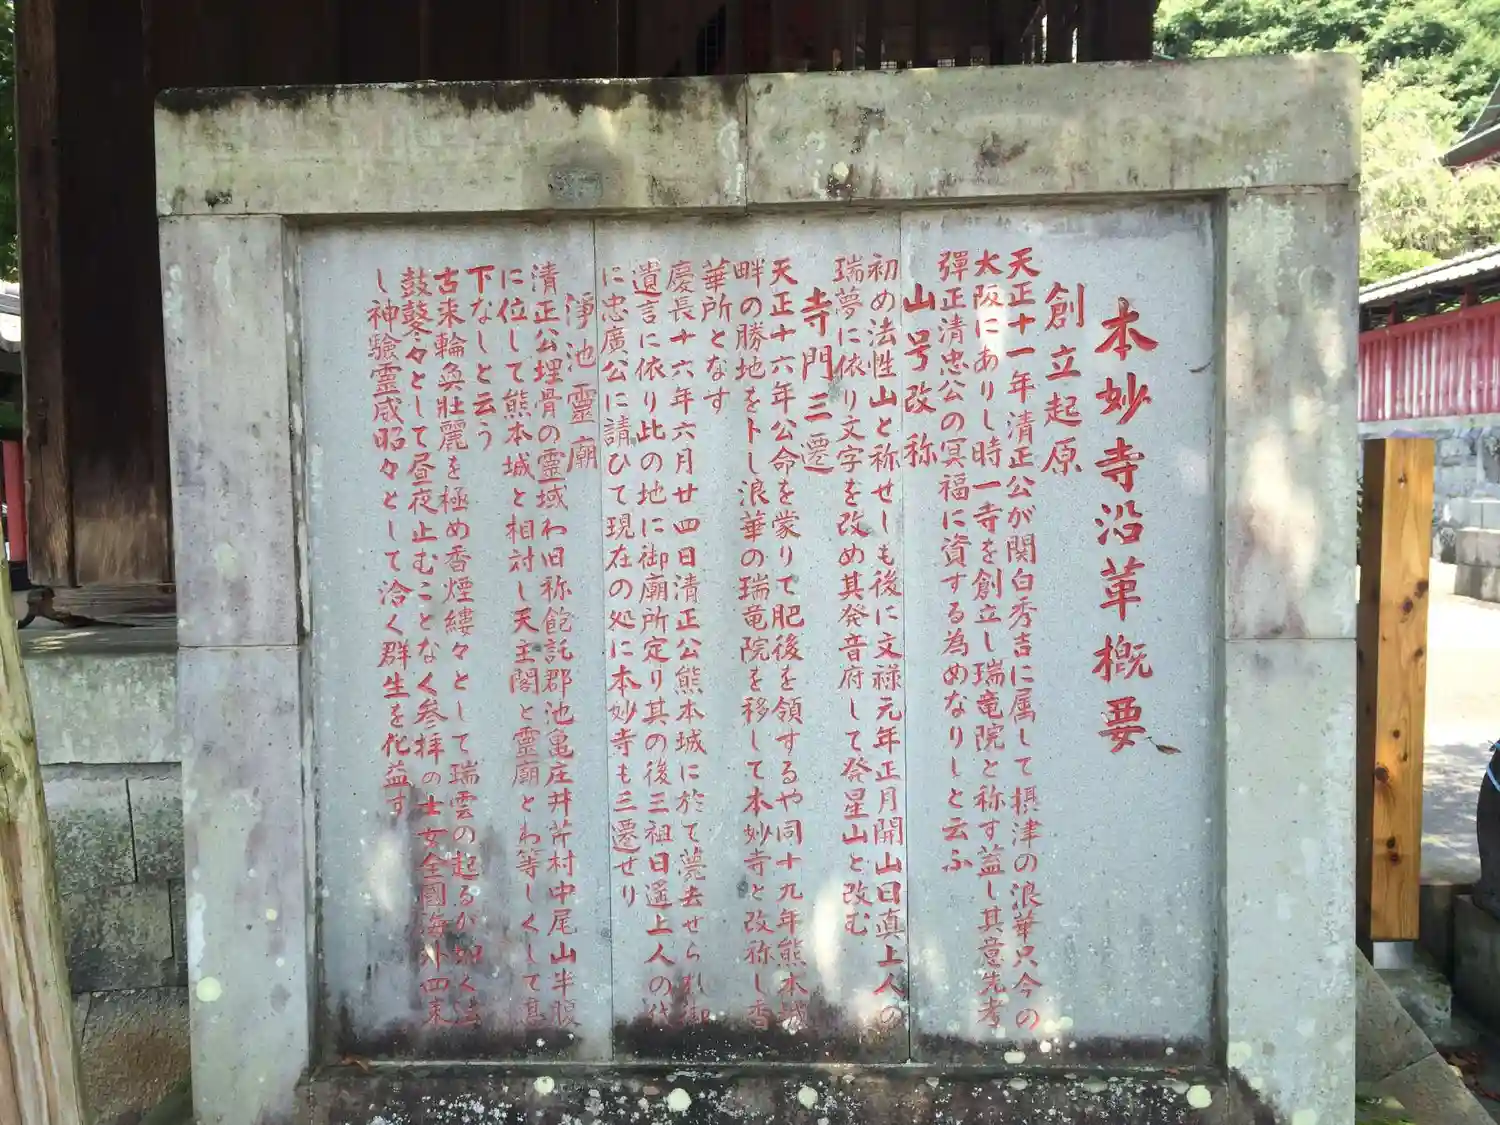 本妙寺沿革概要
創立起原
天正十一年清正公が関白秀吉に属して摂津の浪華只今の
大阪にありし時一寺を創立し瑞竜院と称す蓋し其意先考
彈正清忠公の冥福に資する為めなりしと云ふ
山号改称
初め法性山と称せしも後に文祿元年正月開山日真上人の
瑞夢に依り文字を改め其発音府して発星山と改む
寺門三遷
天正十六年公命を蒙りて肥後を領するや同十九年熊本城
畔の勝地をトし浪華の瑞竜院を移して本妙寺と改称し香
華所となす
慶長十六年六月廿四日清正公熊本城に於て薨去せられ御
遺言に依り此の地に御廟所定り其の後三祖日遙上人の代
に忠廣公に請ひて現在の処に本妙寺も三遷せり
淨池靈廟
清正公埋骨の霊域わ旧称飽託郡池亀庄井芹村中尾山半腹
に位して熊本城と相対し天主閣と靈廟とわ等しくして甚
下なしと云う
古来輪奐壯麗を極め香煙縷々として瑞雲の起るが如く法
鼓鼕々として昼夜止むことなく参拝の士女全國海外四来
し神験霊感昭々として洽く群生を化益す